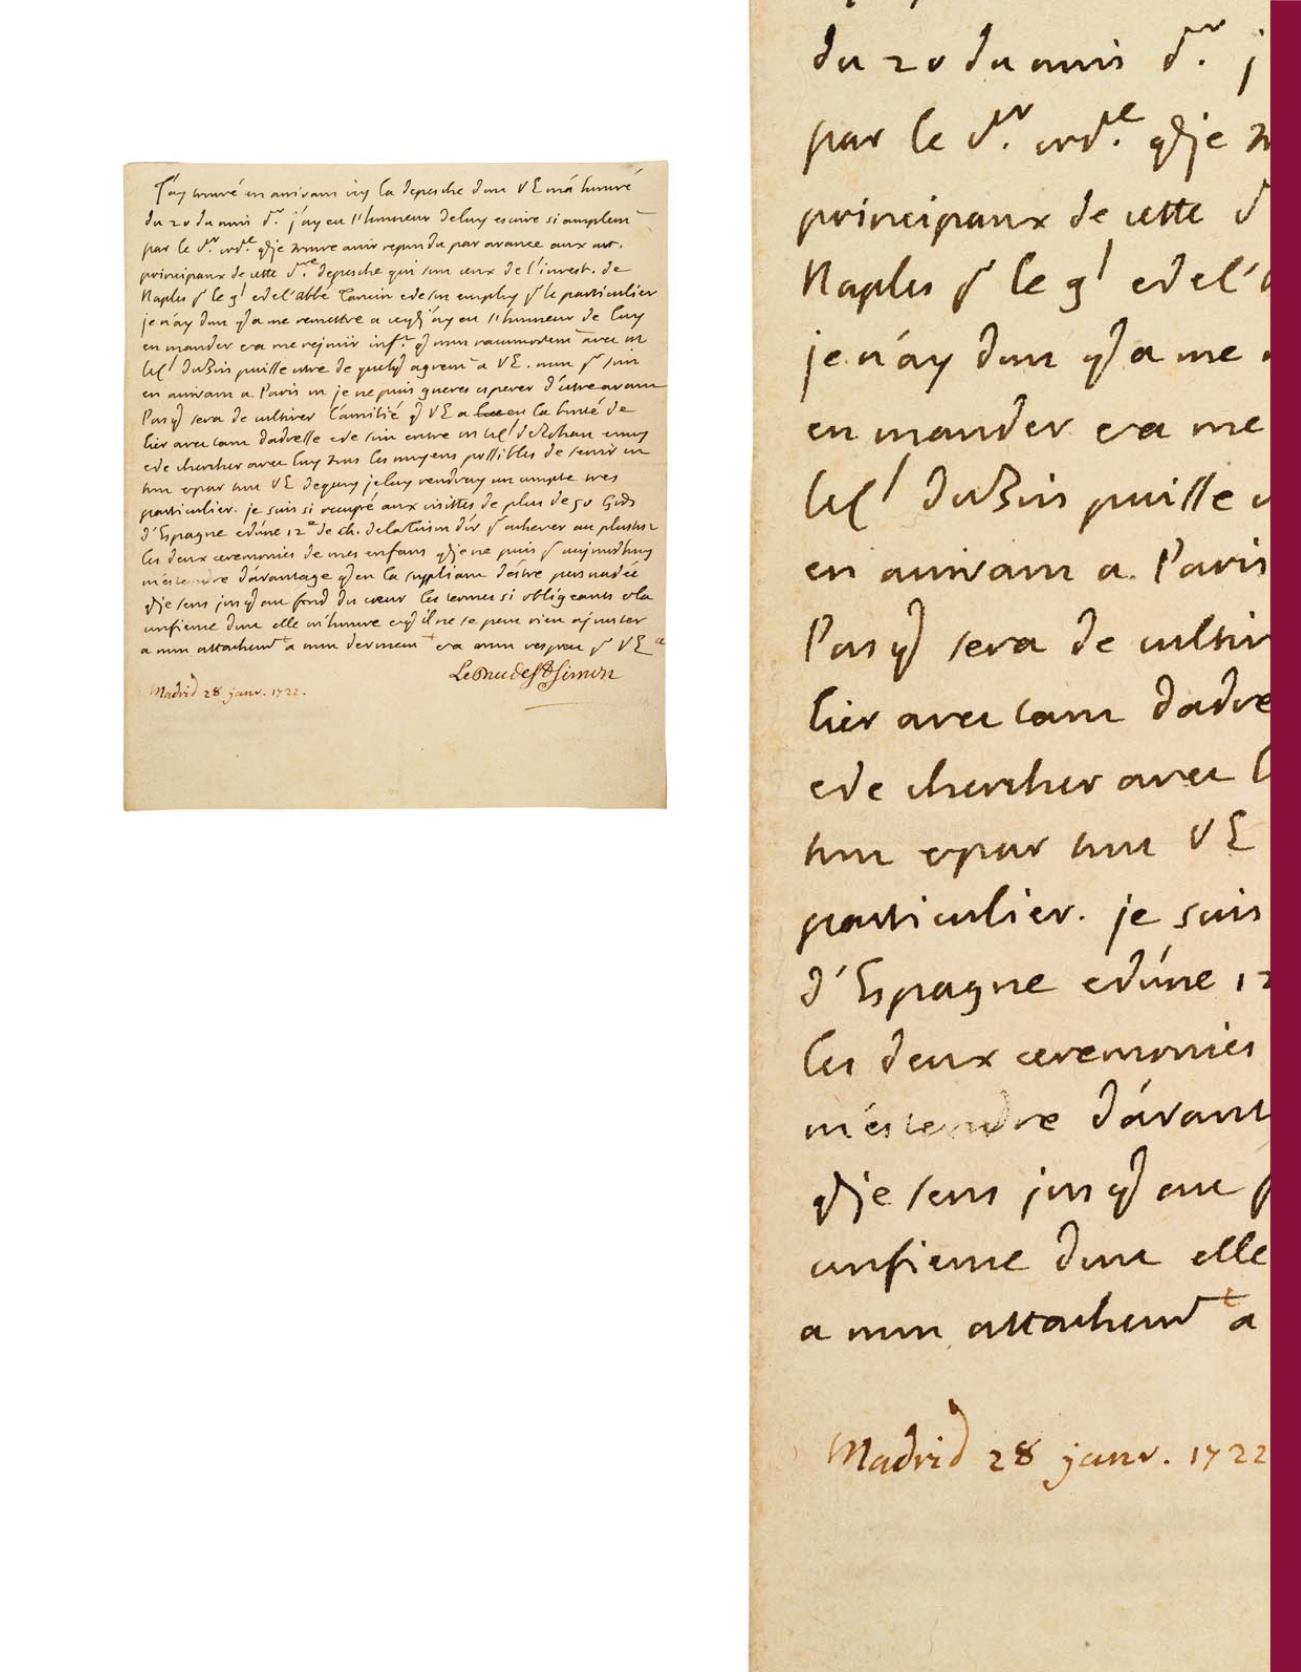 J'ay trouvé en arrivant icy la depesche dont VE m'a honnoré
du 20 du mois dr. j'ay eu l'honneur de luy escrire si amplemt
par le dr. ordre. q je trouve avoir repondu par avance aux art.
principaux de cette dre. depesche qui sont ceux de l'invest. de
Naples p le gl et de l'abbé Tencin et de son employ p le particulier
je n'ay donc q a me remettre a ce q j'ay eu l'honneur de luy
en mander et a me rejouir inft. q mon racommodemt avec m
le Cl duBois puisse estre de quelq agremt a VE. mon pr soin
en arrivant a Paris ou je ne puis gueres esperer d'estre avant
Pasq sera de cultiver l'amitié q VE a eu la bonté de
lier avec tant d'adresse et de soin entre m le Cl de Rohan et moy
et de chercher avec luy tous les moyens possibles de servir en
tout et par tout VE de quoy je luy rendray un compte tres
particulier. je suis si occupé aux visittes de plus de 50 Gds
d'Espagne et d'une 12e de ch. de la Toison d'or p achever au plustost
les deux ceremonies de mes enfans q je ne puis p aujourdhuy
m'estendre d'avantage q en la suppliant d'estre persuadée
q je sens jusq au fond du coeur les termes si obligeants et la
confience dont elle m'honnore et q il ne se peut rien ajouster
a mon attachemt a mon devouemt et a mon respect p VE
Le Duc de St Simon
Madrid 28 janv. 1722.
du 20 du mois dr. j
par le dr. ordre. q je
principaux de cette d
Naples p le gl et de l'a
je n'ay donc q a me
en mander et a me
le Cl duBois puisse
en arrivant a Paris
Pasq sera de cultiv
lier avec tant d'adre
et de chercher avec l
tout et par tout VE
particulier. je suis
d'Espagne et d'une 12
les deux ceremonies
m'estendre d'avant
q je sens jusq au f
confience dont elle
a mon attachemt a
Madrid 28 janv. 1722